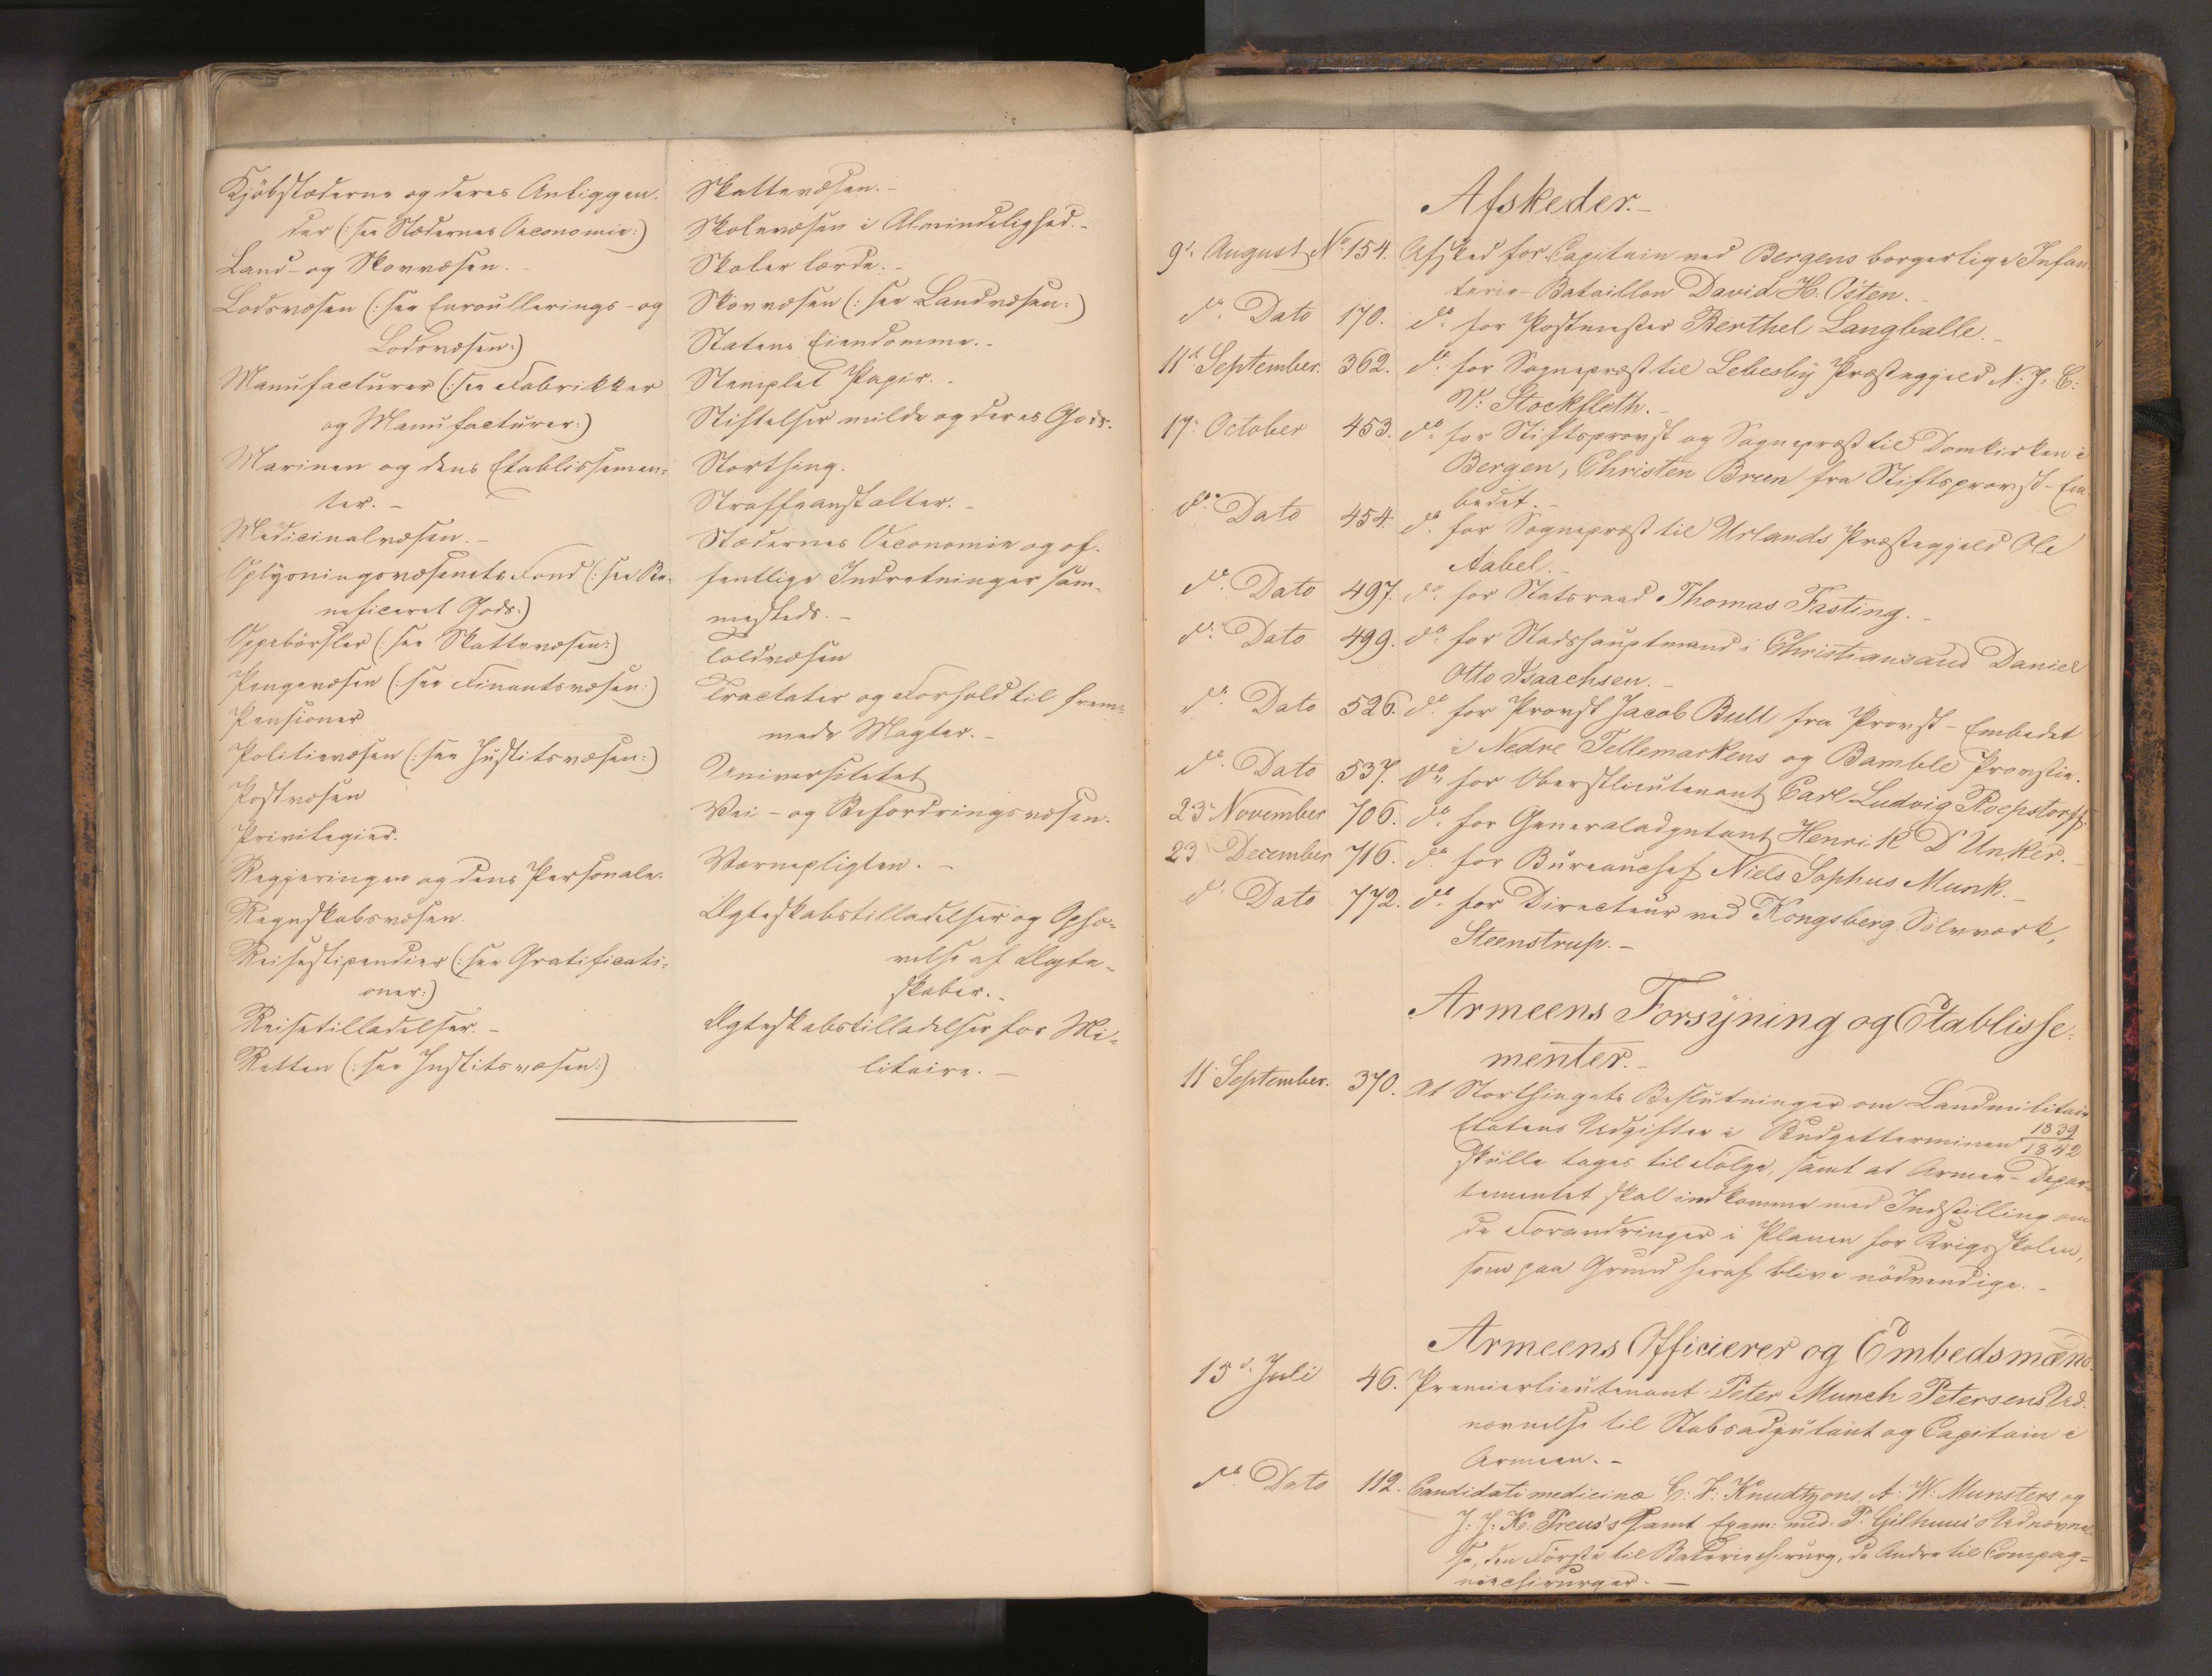 Kjöbstæderne og deres Anliggen-
der (: see Stædernes Oeconomie:)
Land- og Skovvæsen.
Lodsvæsen (: see Enroullerings- og
Lodsvæsen:)
Manufacturer (: see Fabrikker
og Manufacturer:)
Marinen og dens Etablissemen-
ter. -
Medicinalvæsen. -
Oplysningsvæsenets Fond (: see Be-
neficeret Gods:)
Oppebörsler (: see Skattevæsen:)
Pengevæsen (: see Finantsvæsen:)
Pensioner
Politievæsen (: see Justitsvæsen:)
Postvæsen
Privilegier.
Regjeringen og dens Personale.
Regnskabsvæsen.
Reisestipendier (: see Gratificati-
oner:)
Reisetilladelser. -
Retten (: see Justitsvæsen:)
Skattevæsen. -
Skolevæsen i Almindelighed. -
Skoler lærde. -
Skovvæsen (: see Landvæsen:)
Statens Eiendomme. -
Stemplet Papir. -
Stiftelser milde og deres Gods.
Storthing.
Straffeanstalter. -
Stædernes Oeconomie og of-
fentlige Indretninger sam-
mesteds. -
Toldvæsen
Tractater og Forhold til frem-
mede Magter. -
Universitetet
Vei- og Befordringsvæsen.
Værnepligten. -
Ægteskabstilladelser og Ophæ-
velse af Ægte-
skaber. -
Ægteskabstilladelser for Mi-
litaire. -
Afskeder. -
9d. August No 154. Afsked for Capitain ved Bergens borgerlige Infan-
terie-Bataillon David H. Osten. -
do. Dato 170. do. for Postmester Berthel Langballe. -
11d September. 362. do. for Sognepræst til Lebesby Præstegjeld N. J. C:
V: Stockfleth. -
19. October 453. do. for Stiftsprovst og Sognepræst til Domkirken i
Bergen, Christen Brun fra Stiftsprovst-Em-
bedet. -
do. Dato 454. do. for Sognepræst til Urlands Præstegjeld Ole
Aabel. -
do. Dato 497. do. for Statsraad Thomas Fasting. -
do. Dato 499. do. for Stadshauptmand i Christiansand Daniel
Otto Isaachsen. -
do. Dato 526. do. for Provst Jacob Bull fra Provst-Embedet
i Nedre Tellemarkens og Bamble Provstie.
do. Dato 537. do. for Oberstlieutenant Carl Ludvig Roepstorff.
23 November 706. do. for Generaladjutant Henrik D'Unker. -
23 December 716. do. for Büreauchef Niels Sophus Munk. -
do. Dato 772. do. for Directeur ved Kongsberg Sölvværk,
Steenstrup. -
Armeens Forsyning og Etablisse-
menter. -
11. September. 370. At Storthingets Beslutninger om Landmilitair
Etatens Udgifter i Budgetterminen 1839/1842
skulle tages til Fölge, samt at Armee-Depar-
tementet skal indkomme med Indstilling om
de Forandringer i Planen for Krigsskolen,
som paa Grund heraf blive nödvendige. -
Armeens Officierer og Embedsmænd.
15d. Juli 46. Premierlieutenant Peter Munch Petersens Ud-
nævnelse til Stabsadjutant og Capitain i
Armeen. -
do. Dato 112. Candidati medicinæ C: F: Knudtzons, A: W: Munsters og
J: J: K: Preus's samt Exam: med. P. Gilhuus's Udnævnel-
se, den Förste til Batteriechirurg, de Andre til Compag-
niechirurger. -